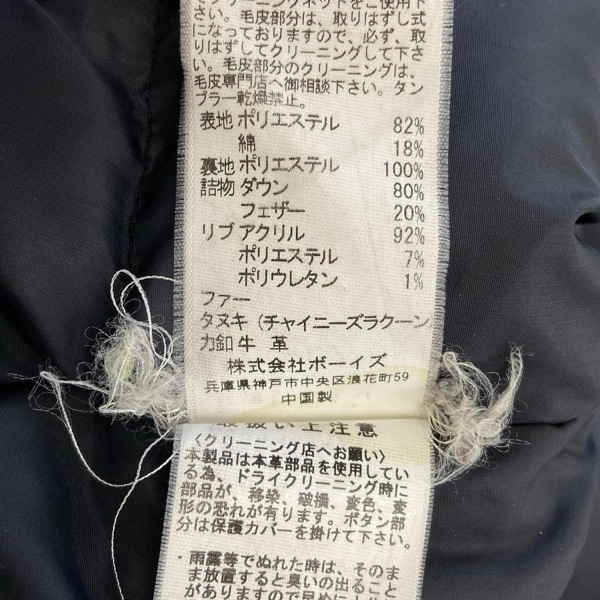 クリーニングネットをご使用下
さい。毛皮部分は、取りはずし式
になっておりますので、必ず、取
りはずしてクリーニングして下さ
い。毛皮部分のクリーニングは、
毛皮専門店へ御相談下さい。タン
ブラー乾燥禁止。
表地 ポリエステル 82%
綿 18%
裏地 ポリエステル 100%
詰物 ダウン 80%
フェザー 20%
リブ アクリル 92%
ポリエステル 7%
ポリウレタン 1%
ファー
タヌキ (チャイニーズラクーン
力釦 牛 革
株式会社ボーイズ
兵庫県神戸市中央区浪花町59
中国製
取扱い上注意
〈クリーニング店へお願い〉
本製品は本革部品を使用してい
る為、ドライクリーニング時に
部品が、移染、破損、変色、変
形の恐れが有ります。ボタン部
分は保護カバーを掛けて下さい。
・雨露等でぬれた時は、そのま
ま放置すると臭いの出ること